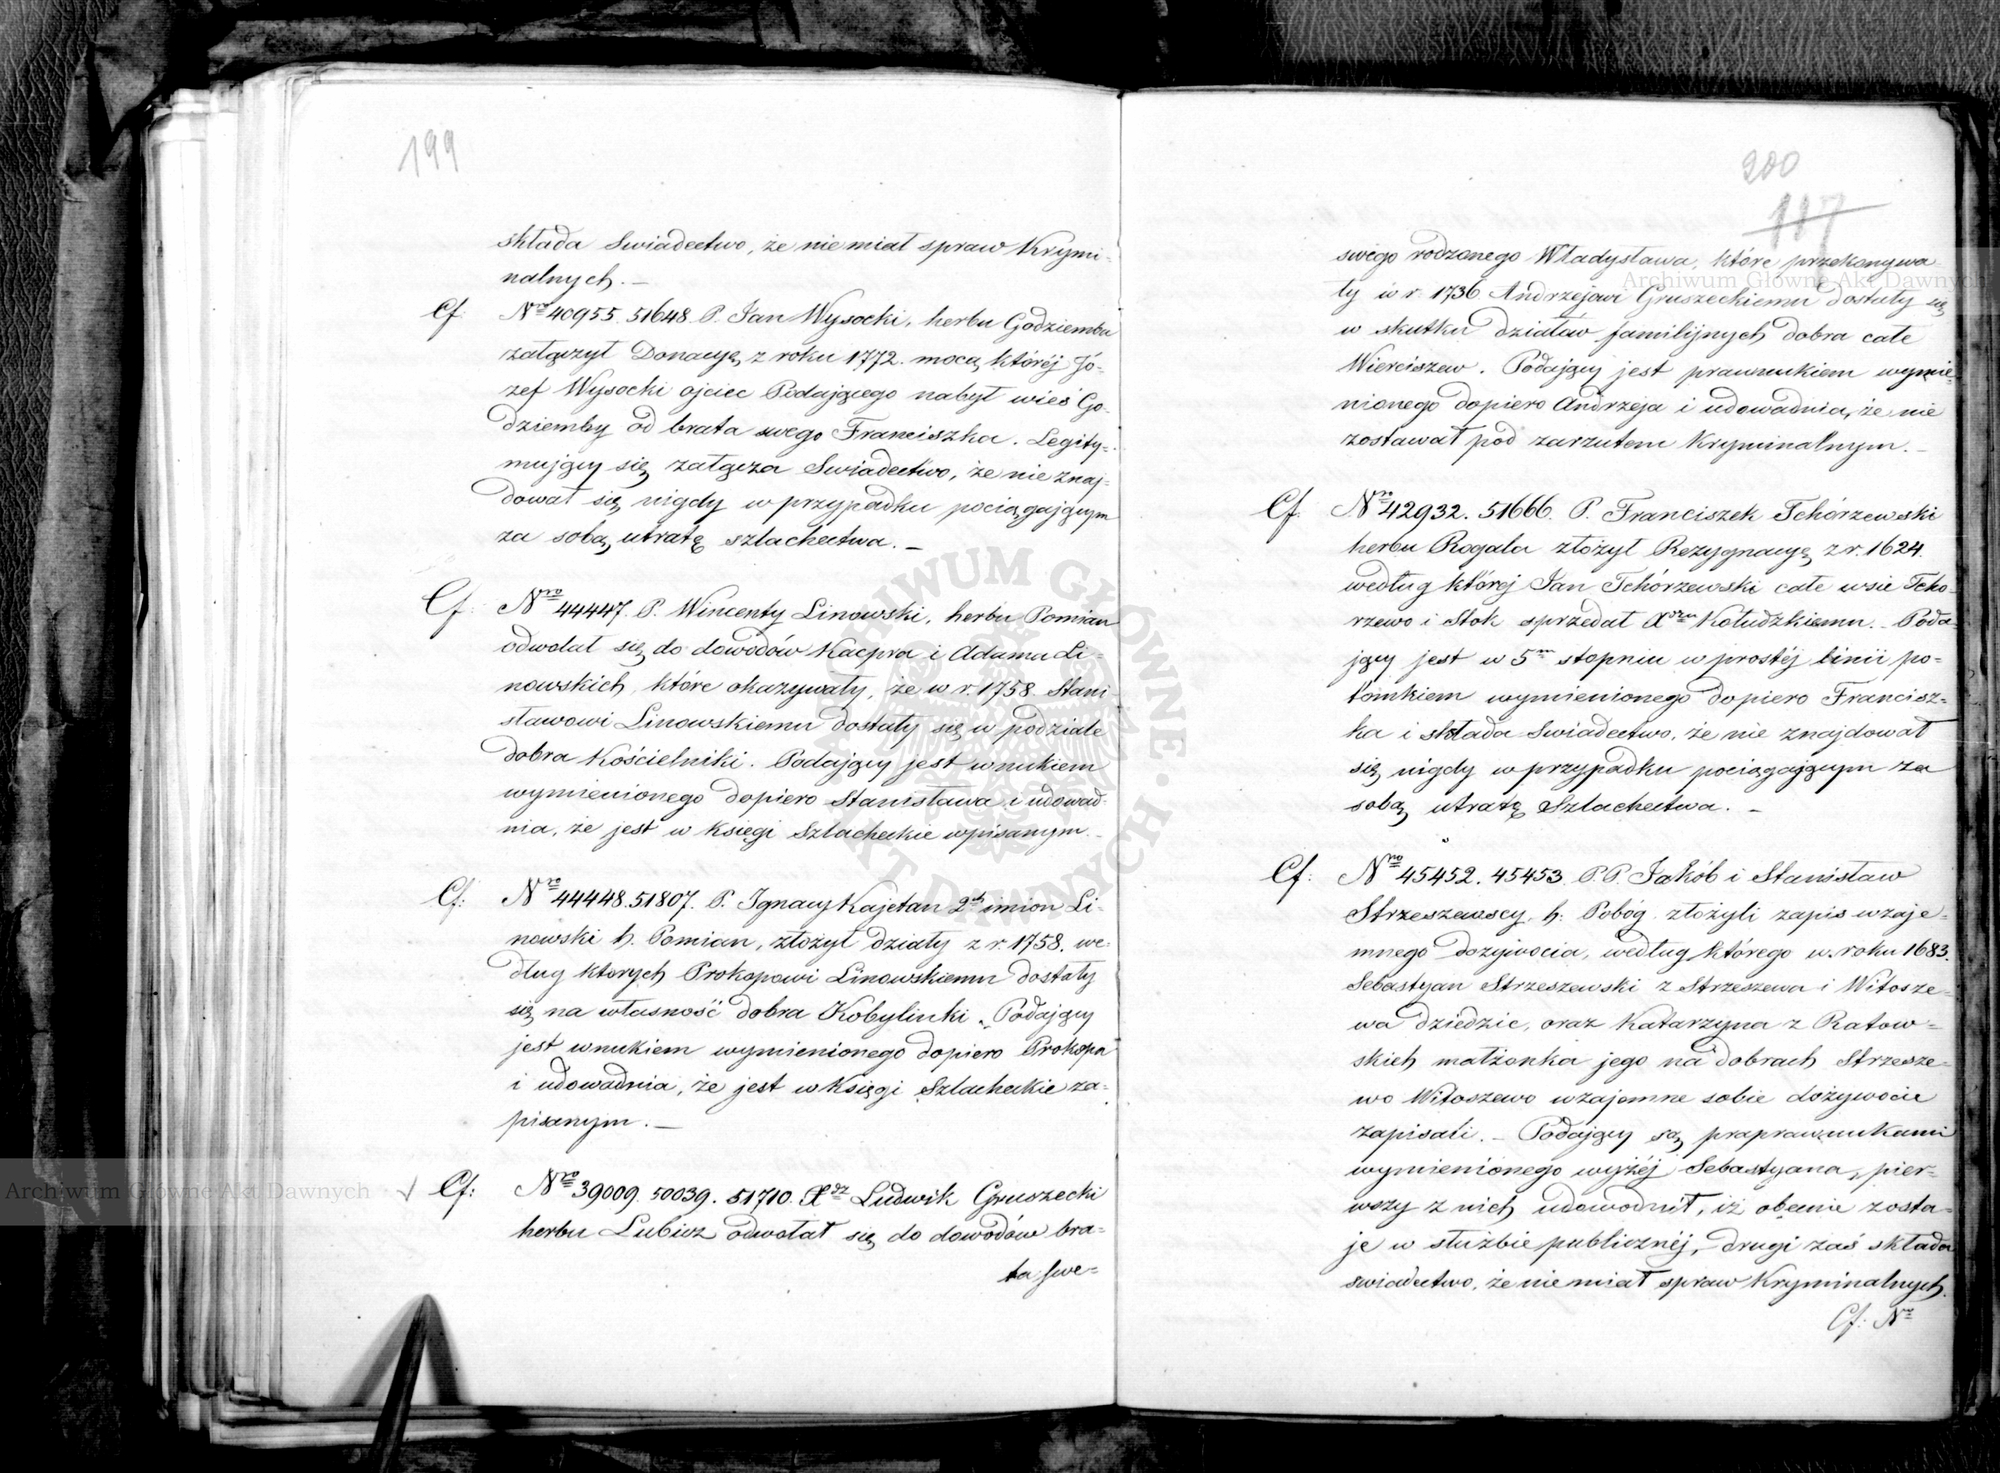 199
składa Swiadectwo, że nie miał spraw Krymi-
nalnych. —
Cf. Nro 40955. 51648. P. Jan Wysocki, herbu Godziemba
załączył Donacyą z roku 1772. mocą któréj Jó-
zef Wysocki ojciec Podającego nabył wieś Go-
dziemby od brata swego Franciszka. Legity-
mujący się załącza Swiadectwo, że nie znaj-
dował się nigdy w przypadku pociągającym
za sobą utratę szlachectwa. —
Cf: Nro 44447. P. Wincenty Linowski, herbu Pomian
odwołał się do dowodów Kacpra i Adama Li-
nowskich, które okazywały, że w r. 1758. Stani-
sławowi Linowskiemu dostały się w podziale
dobra Kościelniki. Podający jest wnukiem
wymienionego dopiero Stanisława i udowad-
nia, że jest w księgi Szlacheckie wpisanym. —
Cf: Nro 44448. 51807. P. Ignacy Kajetan 2ch imion Li-
nowski h. Pomian, złożył działy z r. 1758. we-
dług ktorych Prokopowi Linowskiemu dostały
się na własność dobra Kobylinki. Podający
jest wnukiem wymienionego dopiero Prokopa
i udowadnia, że jest w Księgi Szlacheckie za-
pisanym. —
√ Cf: Nro 39009. 50039. 51710. Xdz Ludwik Gruszecki
herbu Lubicz odwołał się do dowodów bra-
ta swe-
200
117
swego rodzonego Władysława, które przekonywa
ły iż w r. 1736. Andrzejowi Gruszeckiemu dostały się
w skutku działów familijnych dobra całe
Wierciszew. Podający jest prawnukiem wymie-
nionego dopiero Andrzeja i udowadnia, że nie
zostawał pod zarzutem Kryminalnym. —
Cf. Nro 42932. 51666. P. Franciszek Tchórzewski
herbu Rogala złożył Rezygnacyą z r. 1624.
według której Jan Tchórzewski całe wsie Tcho-
rzewo i Stok sprzedał Kołudzkiemu. — Poda-
jący jest w 5m stopniu w prostéj linii po-
tomkiem wymienionego dopiero Francisz-
ka i składa Swiadectwo, że nie znajdował
się nigdy w przypadku pociągającym za
sobą utratę Szlachectwa. —
Cf: Nro 45452. 45453. P.P. Jakób i Stanisław
Strzeszewscy h: Pobóg złożyli zapis wzaje-
mnego dożywocia, według którego w roku 1683.
Sebastyan Strzeszewski z Strzeszewa i Witosze-
wa dziedzic, oraz Katarzyna z Ratow-
skich małżonka jego na dobrach Strzesze-
wo Witoszewo wzajemne sobie dożywocie
zapisali. — Podający są praprawnukami
wymienionego wyżéj Sebastyana, pier-
wszy z nich udowodnił, iż obecnie zosta-
je w służbie publicznéj, drugi zaś składa
swiadectwo, że nie miał spraw Kryminalnych.
Cf: Nro
Archiwum Główne Akt Dawnych
Archiwum Główne Akt Dawnych
ARCHIWUM GŁÓWNE AKT DAWNYCH